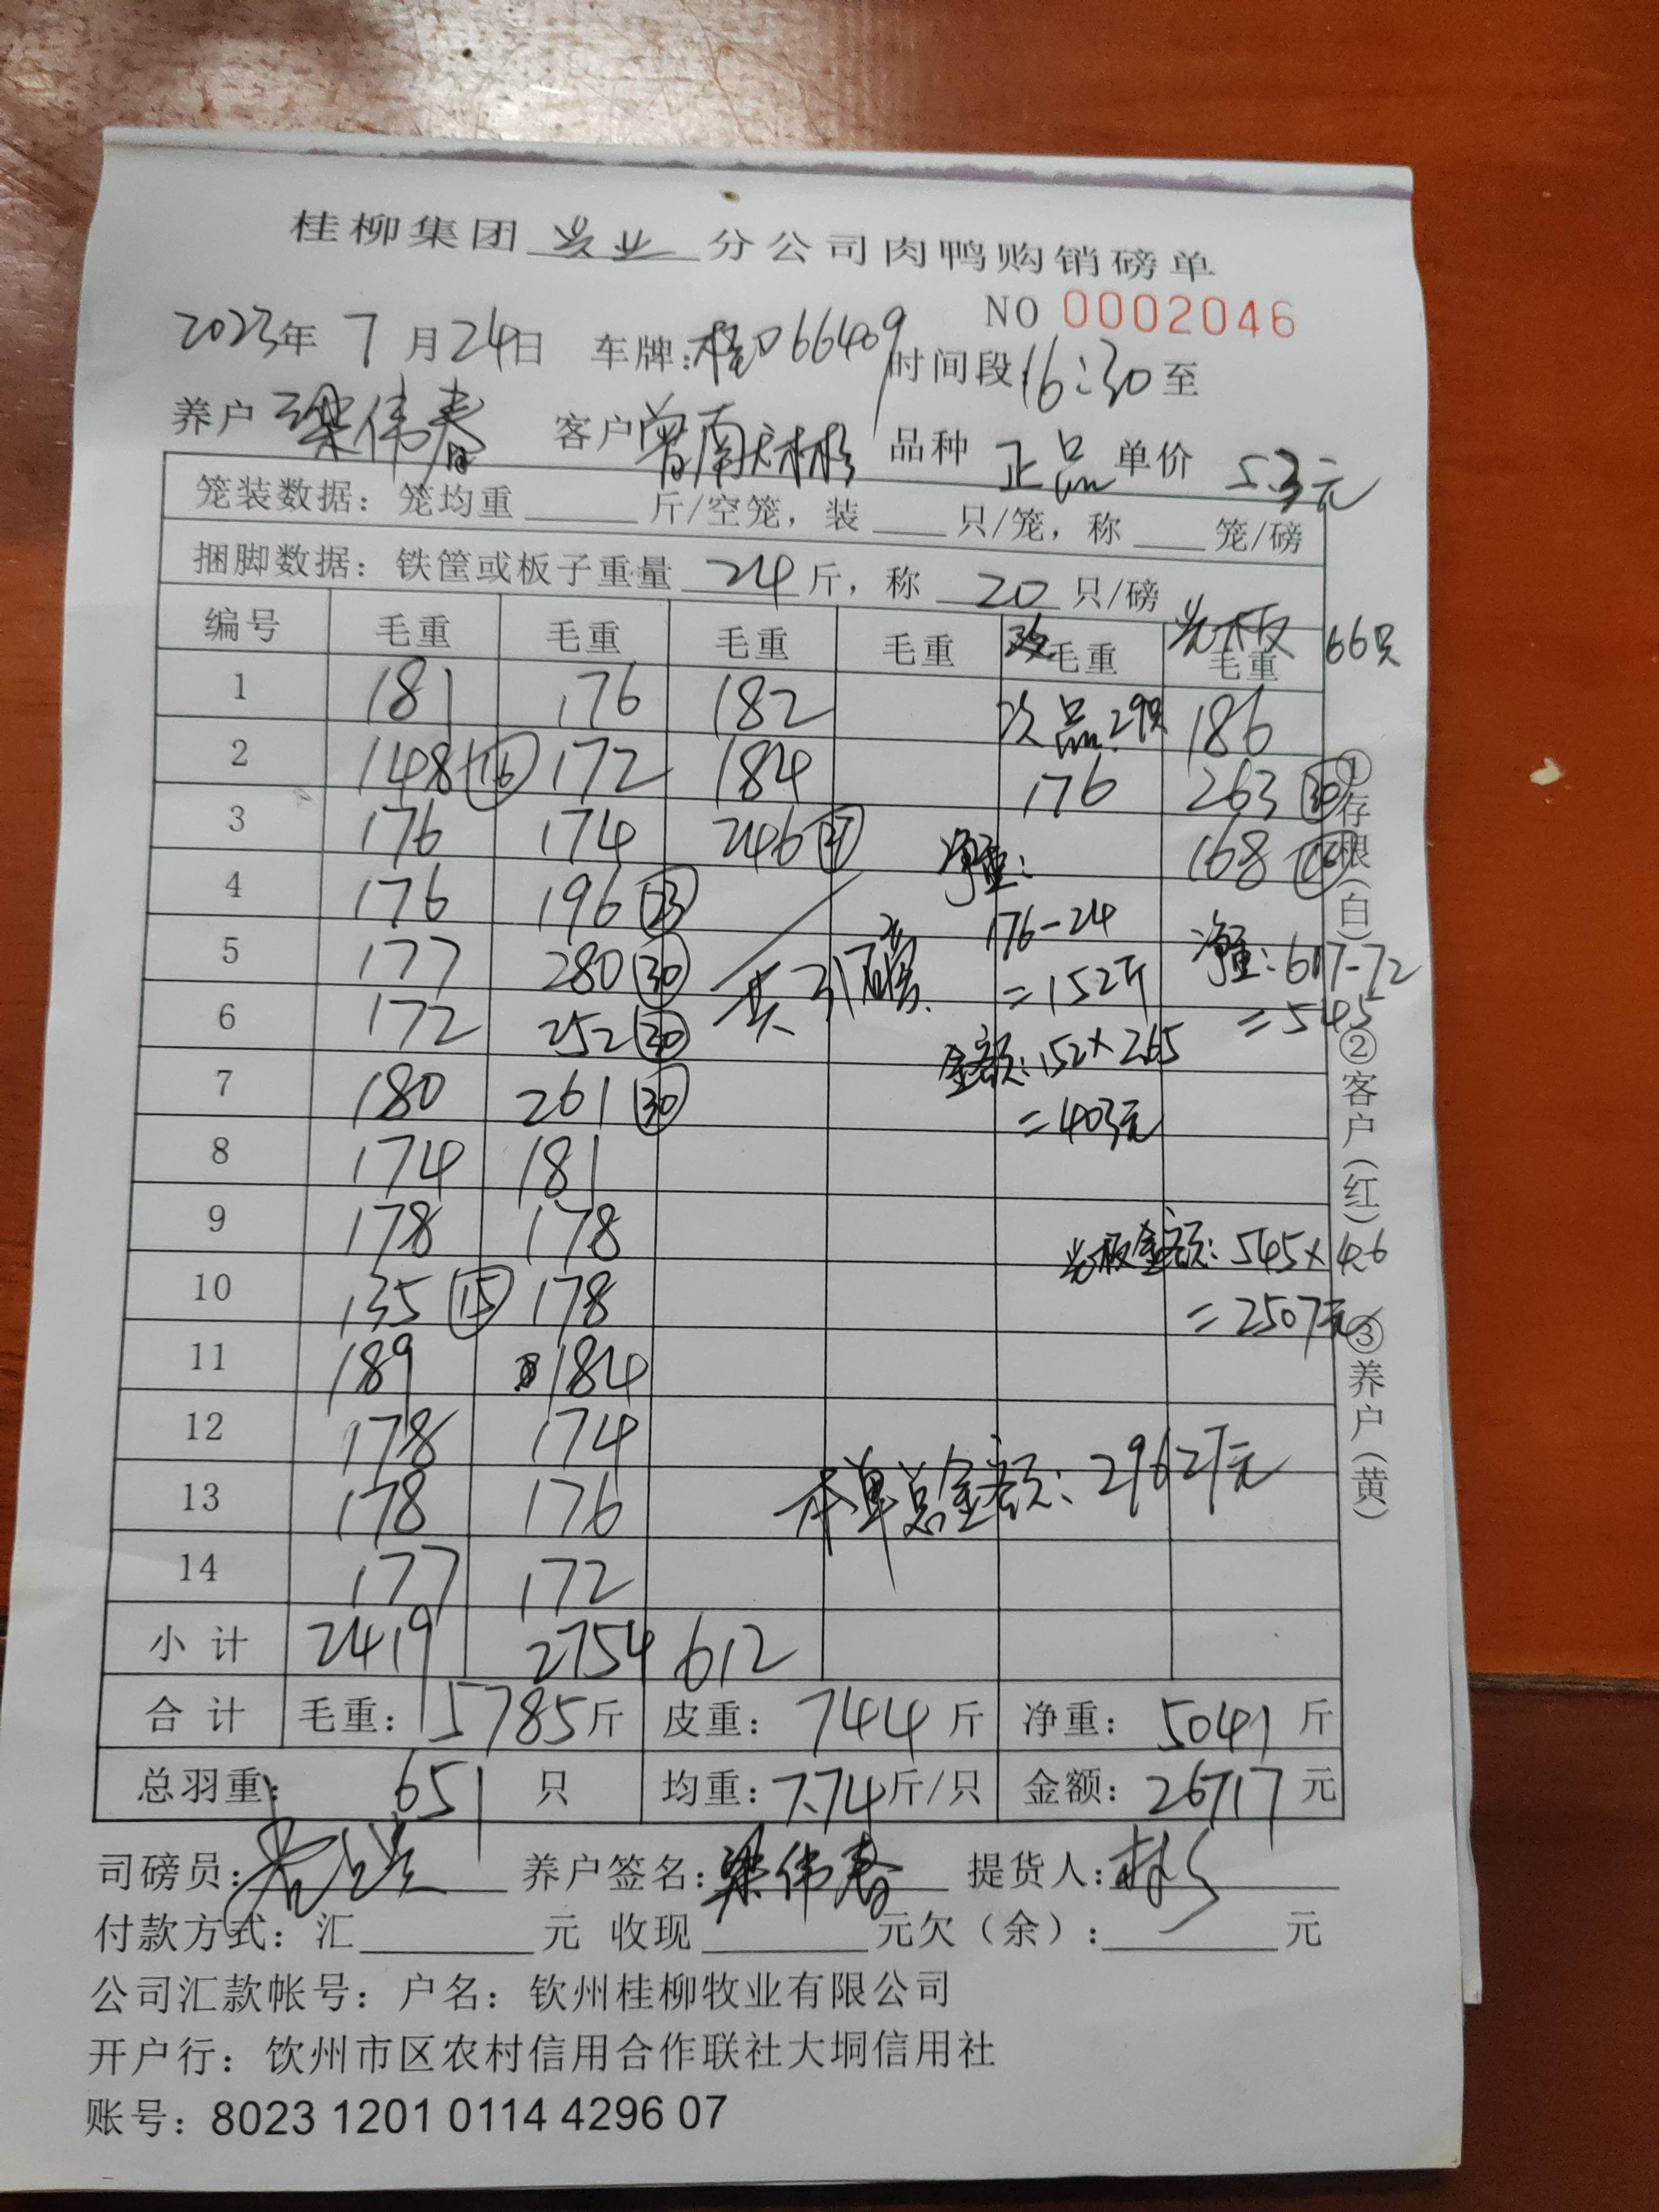 桂柳集团 兴业 分公司肉鸭购销磅单
NO 0002046
2023年 7 月 24日 车牌:桂D66409 时间段 16:30 至
养户 梁伟春 客户 曾南 品种 正品 单价 5.3元
笼装数据：笼均重 斤/空笼，装 只/笼，称 笼/磅
捆脚数据：铁筐或板子重量 24 斤，称 20 只/磅
编号 毛重 毛重 毛重 毛重 毛重 光板 毛重 66只
1 181 176 182 次品:29只 186
2 148 (16) 172 184 176 263 (30)
3 176 174 246 (27) 净重: 168
4 176 196 (23) 176-24
5 177 280 (30) 共31磅 =152斤 净重:617-72
6 172 252 (30) =545
7 180 261 (30) 金额:152×2.65
8 174 181 =403元
9 178 178
光板金额:545×4.6
10 135 (15) 178 =2507元
11 189 184
12 178 174
13 178 176 本单总金额:29627元
14 177 172
小计 2419 2754 612
合计 毛重: 5785斤 皮重: 744 斤 净重: 5041 斤
总羽重: 651 只 均重: 7.74斤/只 金额: 26717 元
司磅员: 养户签名:梁伟春 提货人:林
付款方式：汇 元 收现 元欠（余）: 元
公司汇款帐号：户名：钦州桂柳牧业有限公司
开户行：饮州市区农村信用合作联社大垌信用社
账号：8023 1201 0114 4296 07
①存根(白)②客户(红)③养户(黄)